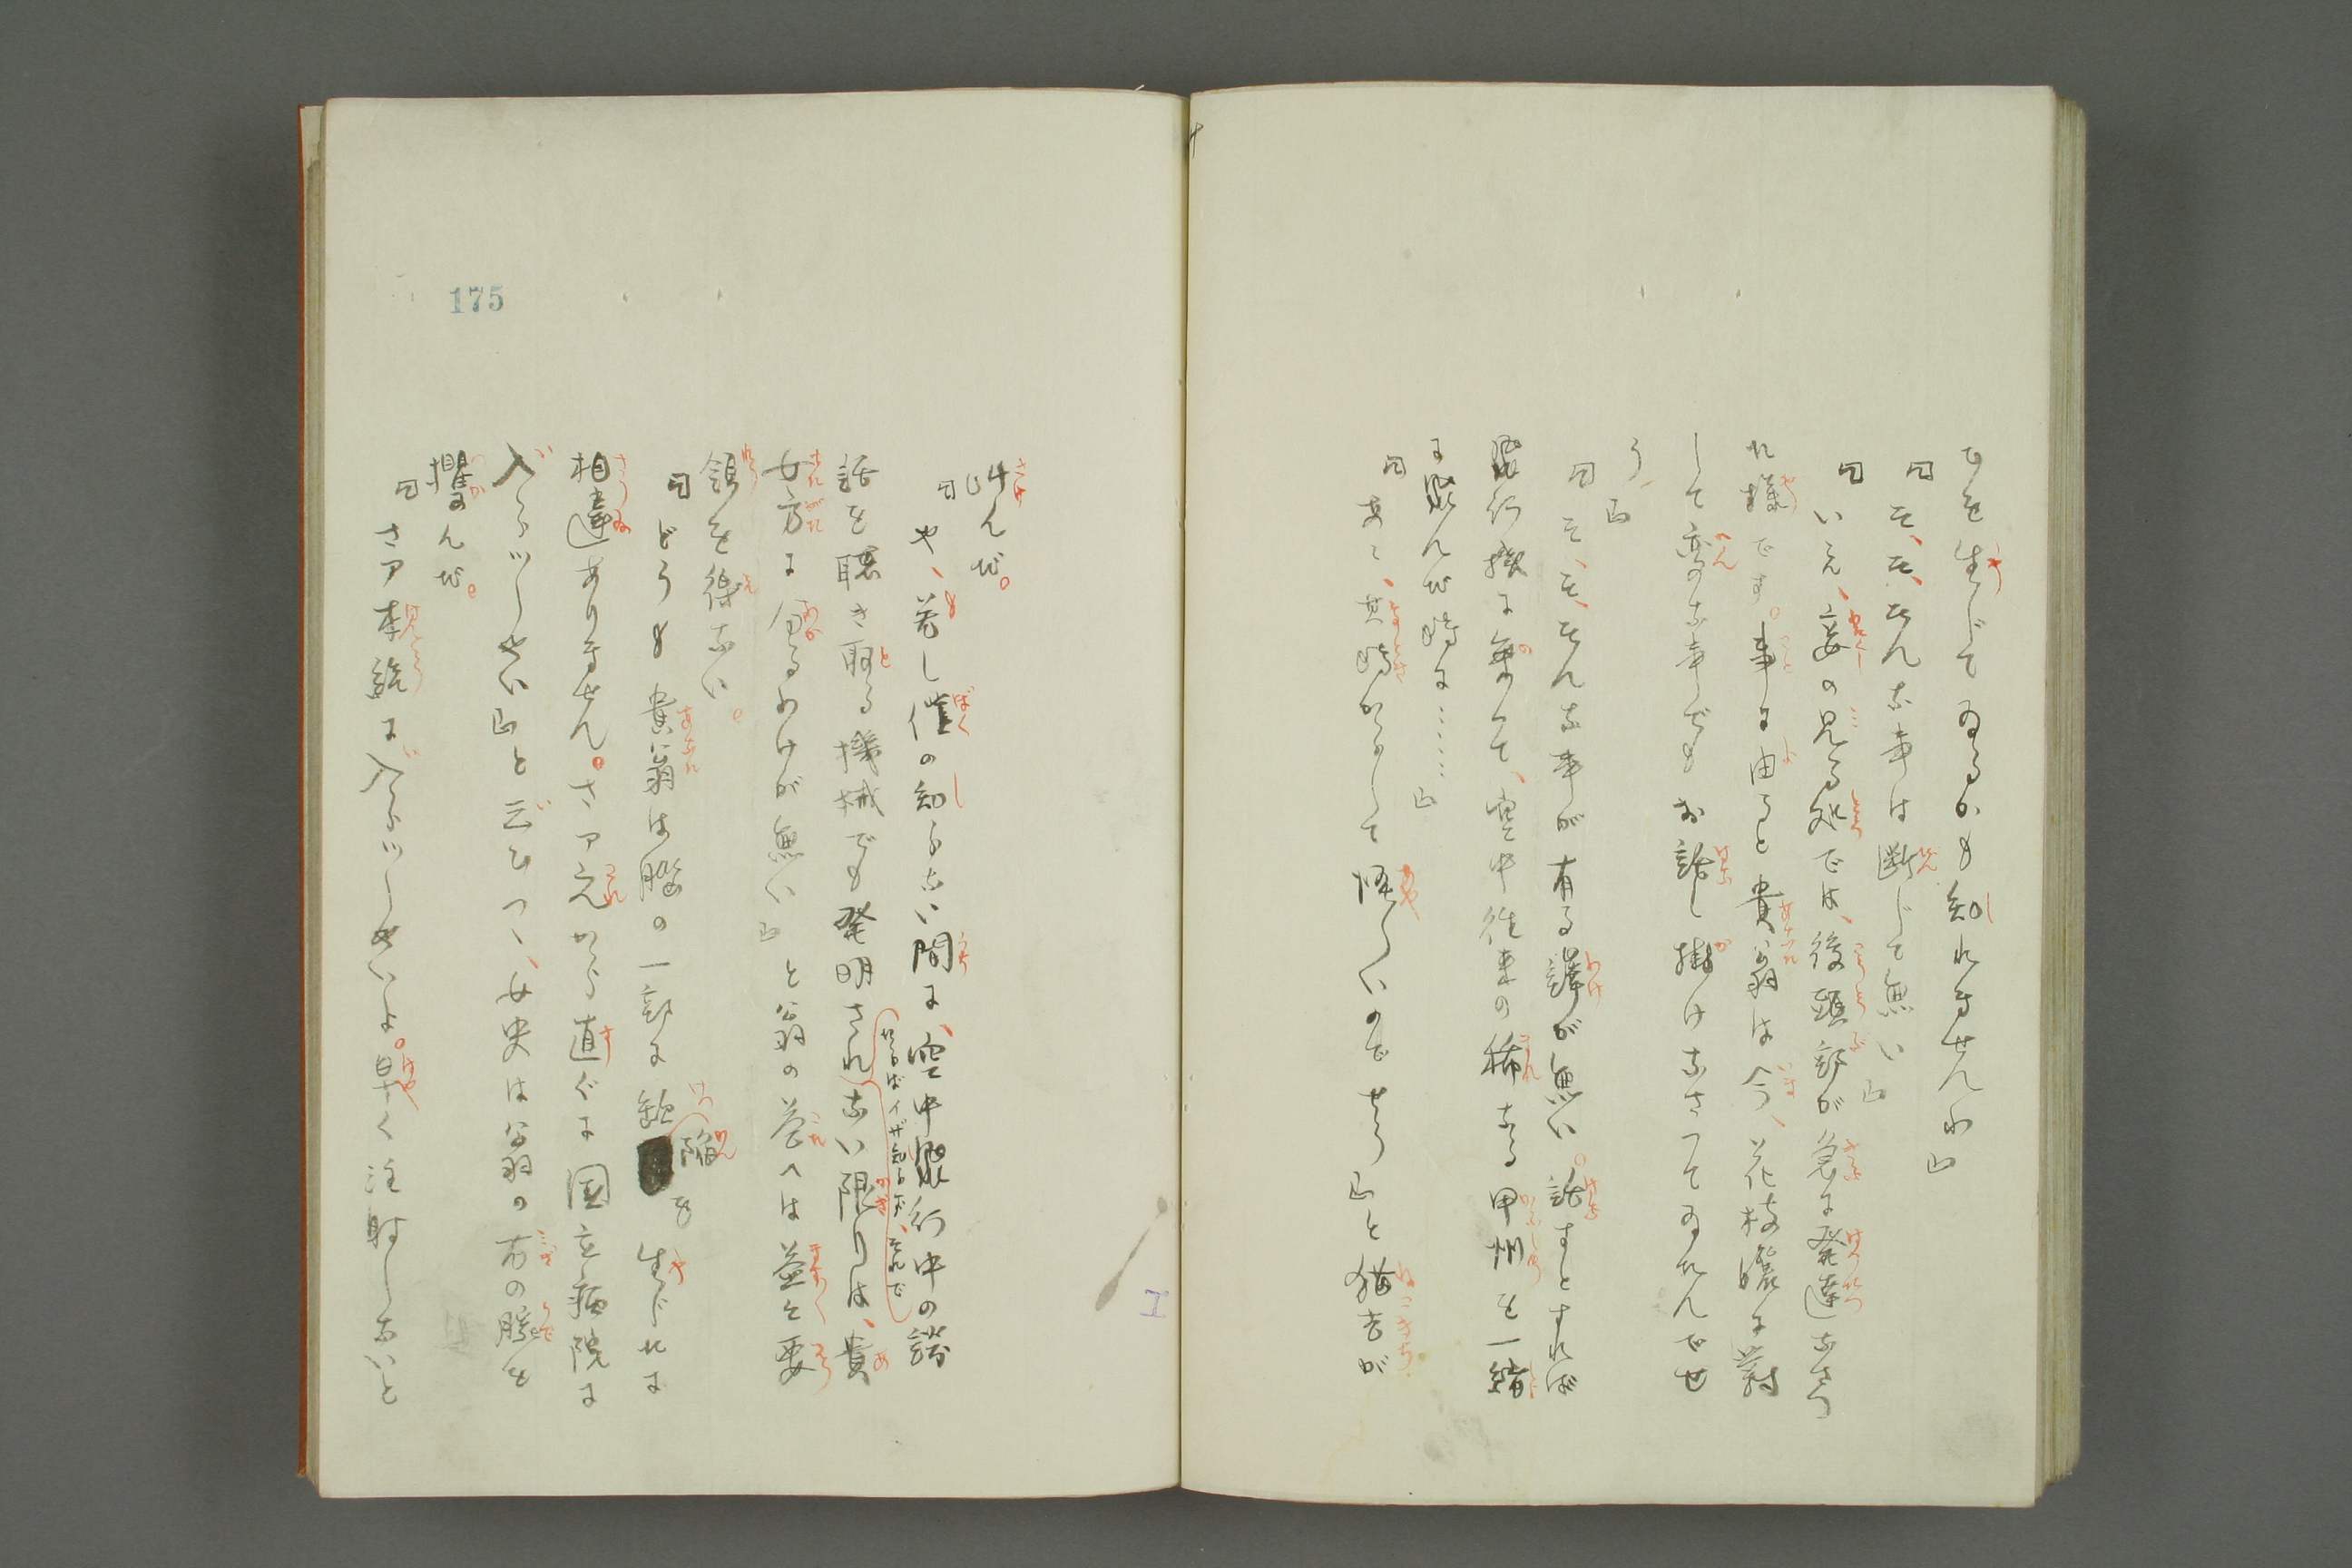 ひを生じてゐるかも知れませんわ」
「そ、そ、そんな事は断じて無い」
「いえ、妾の見る処では、後頭部が急に発達なさつ
た様です。事に由ると貴翁は今、花枝孃に對
して変な事でもお話し掛けなさつてゐたんでせ
う」
「そ、そ、そんな事が有る譯が無い。話すとすれば
飛行機に乗つて、空中往来の稀なる甲州を一緒
に飛んだ時に……」
「あゝ、其時からして怪しいのでせう」と猫吉が
叫んだ。
「や、若し僕の知らない間に、空中飛行中の談
話を聴き取る機械でも発明されない限りは、貴
せらればイザ知らず、それで
女方に分るわけが無い」と翁の答へは益々要
領を得ない。
「どうも貴翁は脳の一部に缺陥を生じたに
相違ありません。さア之から直ぐに国立病院に
入らツしやい」と云ひつゝ、女史は翁の右の腕を
攫んだ。
「さア本統に入らツしやいよ。早く注射しないと
175